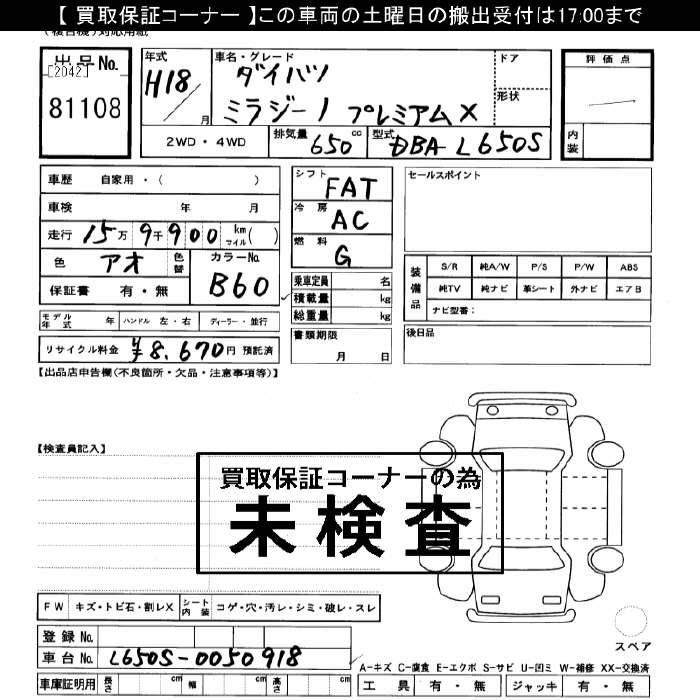 【 買取保証コーナー 】この車両の土曜日の搬出受付は17:00まで
出品No.
[2042]
81108
年式
H18
月
車名・グレード
ダイハツ
ミラジーノ プレミアムX
ドア
形状
評価点
内装
2WD ・ 4WD
排気量 650 cc
型式 DBA-L650S
車歴 自家用・( )
車検 年 月
走行 15万 9千 900 km マイル ( )
色 アオ 色替
カラーNo. B60
保証書 有・無
シフト FAT
冷房 AC
燃料 G
乗車定員 名
積載量 kg
総重量 kg
セールスポイント
装備品
S/R 純A/W P/S P/W ABS
純TV 純ナビ 革シート 外ナビ エアB
ナビ型番:
モデル年式 年 ハンドル 左・右 ディーラー・並行
リサイクル料金 ¥8.670円 預託済
書類期限
月 日
後日品
【出品店申告欄(不良箇所・欠品・注意事項等)】
【検査員記入】
買取保証コーナーの為
未検査
FW キズ・トビ石・割レX シート内装 コゲ・穴・汚レ・シミ・破レ・スレ
登録No.
車台No. L650S-0050918
スペア
A-キズ C-腐食 E-エクボ S-サビ U-凹ミ W-補修 XX-交換済
車庫証明用 長さ cm 幅 cm 高さ cm
工具 有・無 ジャッキ 有・無